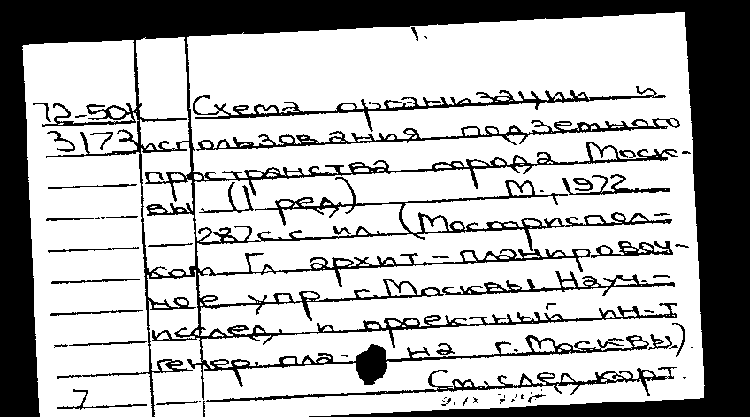 1.
72-50к Схема организации и
3173 использования подземного
пространства города Моск-
вы. (1 ред.) М., 1972.
287с.с ил. (Мосгориспол-
ком Гл. архит.-планировоч-
ное упр. г.Москвы. Науч.-
исслед. и проектный ин-т
генер. пла- на г.Москвы).
См.след.карт.
7